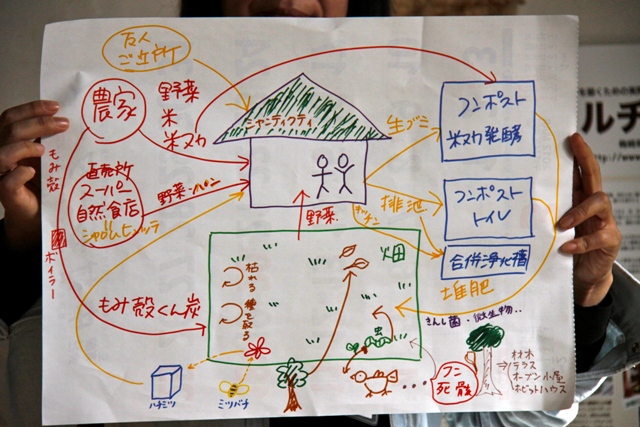 友人
ご近所
農家
野菜
米
米ヌカ
シャンティクティ
生ゴミ
コンポスト
米ヌカ発酵
もみ殻
ボイラー
直売所
スーパー
自然食店
野菜・パン
キッチン
排泄
コンポスト
トイレ
合併浄化槽
堆肥
野菜
畑
枯れる
種を取る
もみ殻くん炭
きんし菌・微生物‥
ハチミツ
ミツバチ
フン
死骸
材木
テラス
オーブン小屋
ホビットハウス
ルチ
http://www